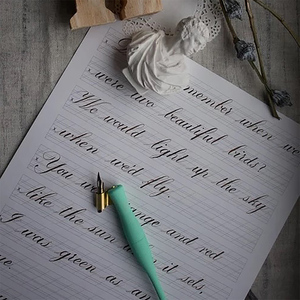 member when we
were two beautiful birds?
We would light up the sky
when we'd fly.
You we ange and red
like the sun it sets,
I was green as an